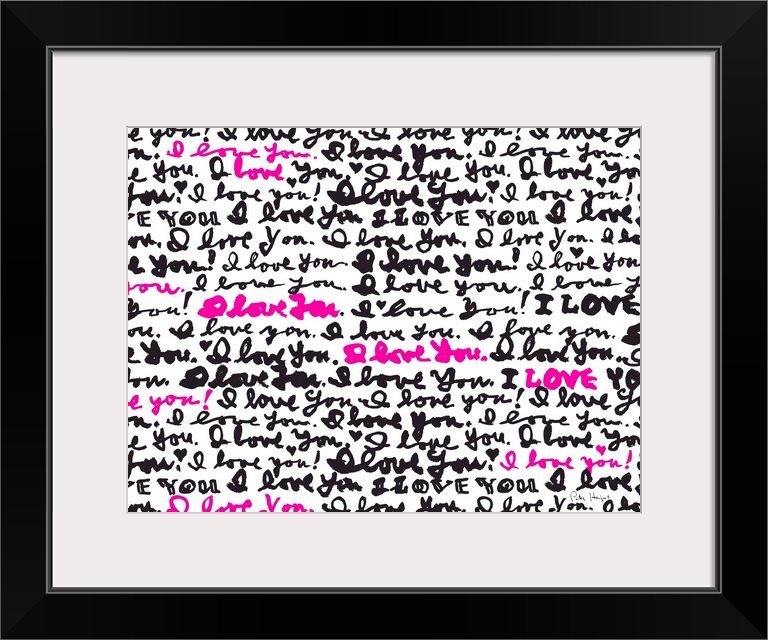 e you! I love you. I love you! I love yo
n. I love you. I love you. I love you.
e You. I love You. I love you. I love yo
you! I love you! I love You! I love you!
E YOU I love You I LOVE YOU I love
ou. I love You. I love You. I love You. I lo
e You! I love You I love You! I love You
you. I love you. I love you. I love you.
you! I love You. I love You! I LOVE
ou. I love you. I love you. I love you.
e You. I love You. I love You. I love You.
ou. I love You. I love You. I LOVE YO
e you! I love You. I love you! I love Yo
n. I love you. I love you. I love you.
e You. I love You. I love you. I love yo
you! I love you! I love You. I love you!
E YOU I love You I LOVE YOU I love
ou. I love You. I love You. I love You. I lo